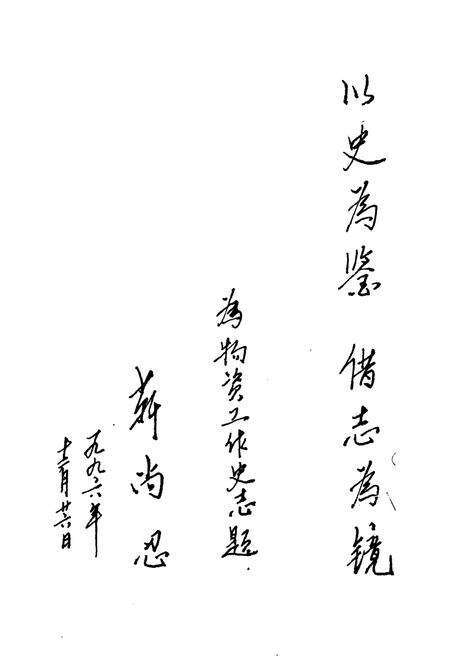 以史為鉴 借志為镜
為物资工作史志题
靳尚忍
一九九六年
十二月廿六日